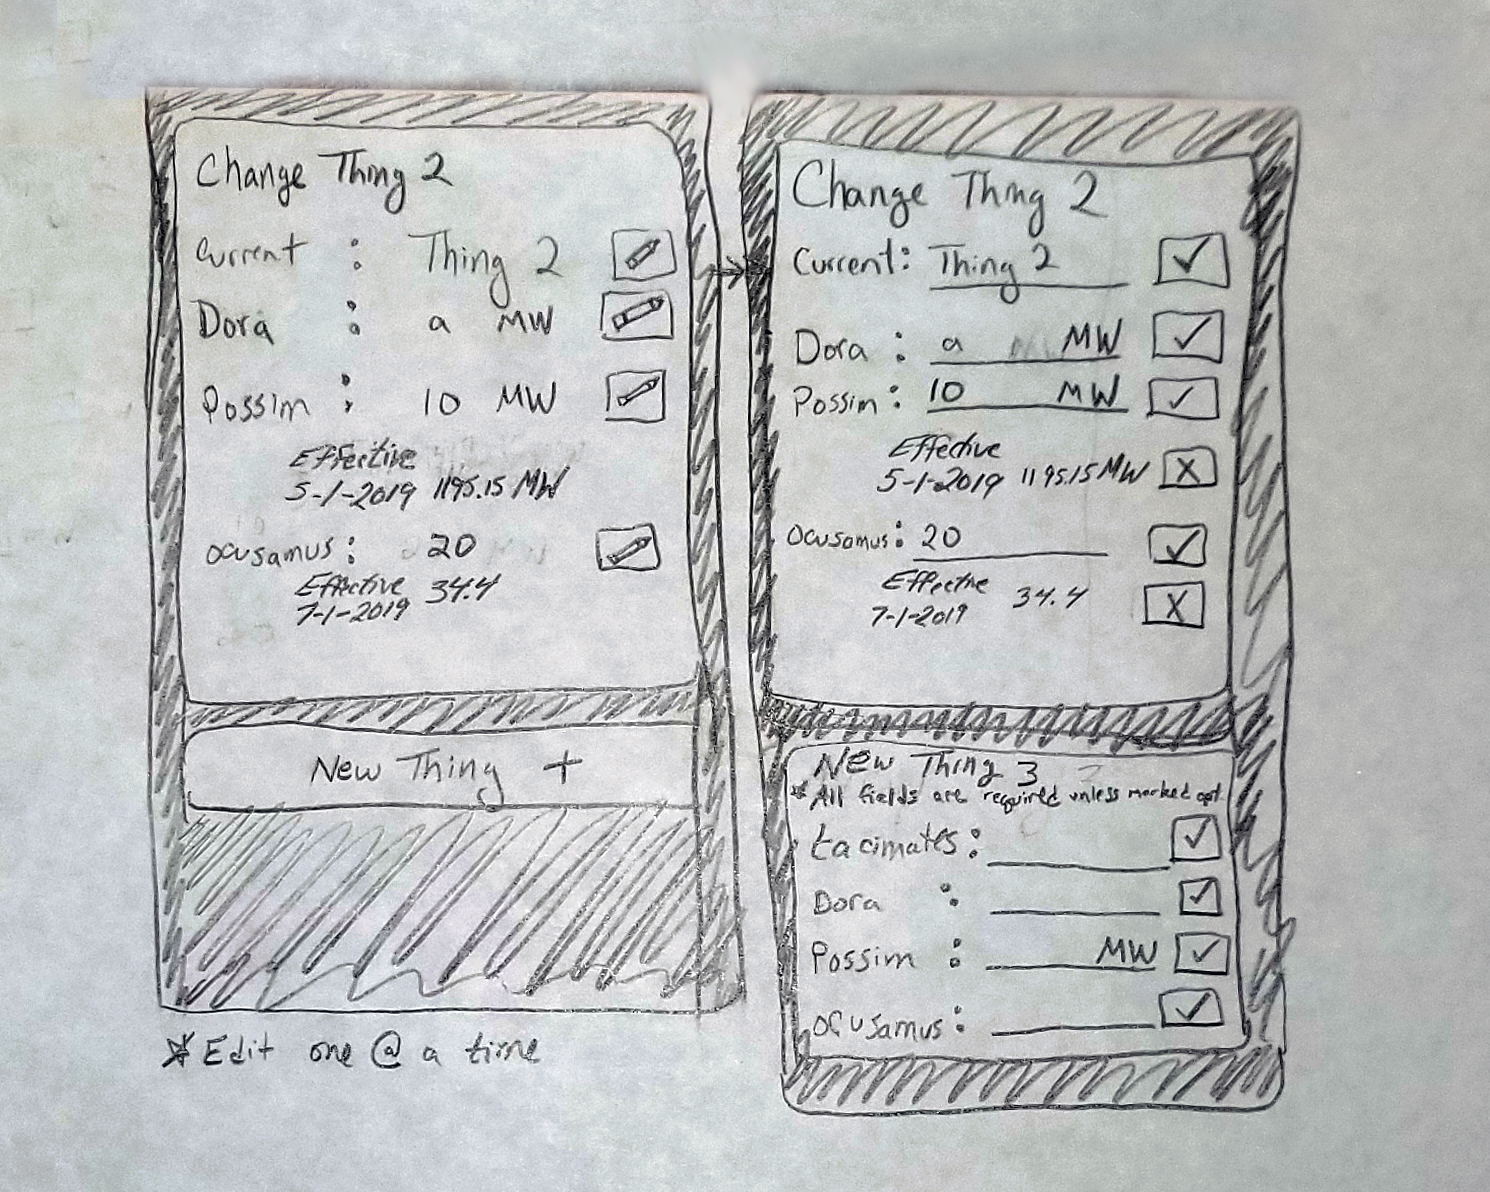 Change Thing 2
Current : Thing 2
Dora : a MW
Possim : 10 MW
Effective
5-1-2019 1195.15 MW
Ocusamus : 20
Effective 34.4
7-1-2019
New Thing +
* Edit one @ a time
Change Thing 2
Current: Thing 2
Dora : a MW
Possim : 10 MW
Effective
5-1-2019 1195.15 MW X
Ocusamus : 20
Effective 34.4 X
7-1-2019
New Thing 3
* All fields are required unless marked opt.
Facimates :
Dora :
Possim : MW
Ocusamus :